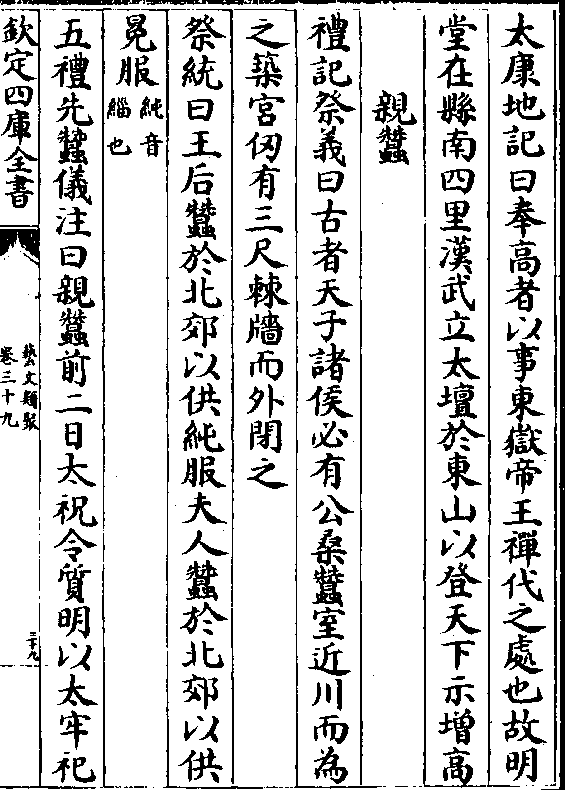 太康地記曰奉高者以事東嶽帝王禪代之處也故明
堂在縣南四里漢武立太壇於東山以登天下示增高
親蠶
禮記祭義曰古者天子諸侯必有公桑蠶室近川而為
之築宮仞有三尺棘牆而外閉之
祭統曰王后蠶於北郊以供純服夫人蠶於北郊以供
冕服純音緇也
五禮先蠶儀注曰親蠶前二日太祝令質明以太牢祀
欽定四庫全書
藝文類聚
卷三十九
三十九